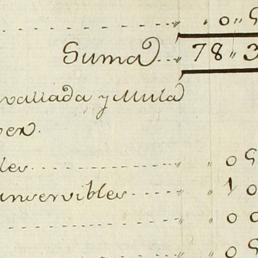 " 0 " 9
Suma " 78 " 3
vallada y Mula
les " 0 9
unservibles " 1 0
" 0 0
" 0 9